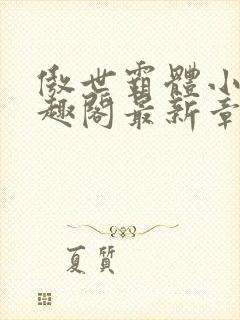 傲世霸體小
趣閣最新章
夏質